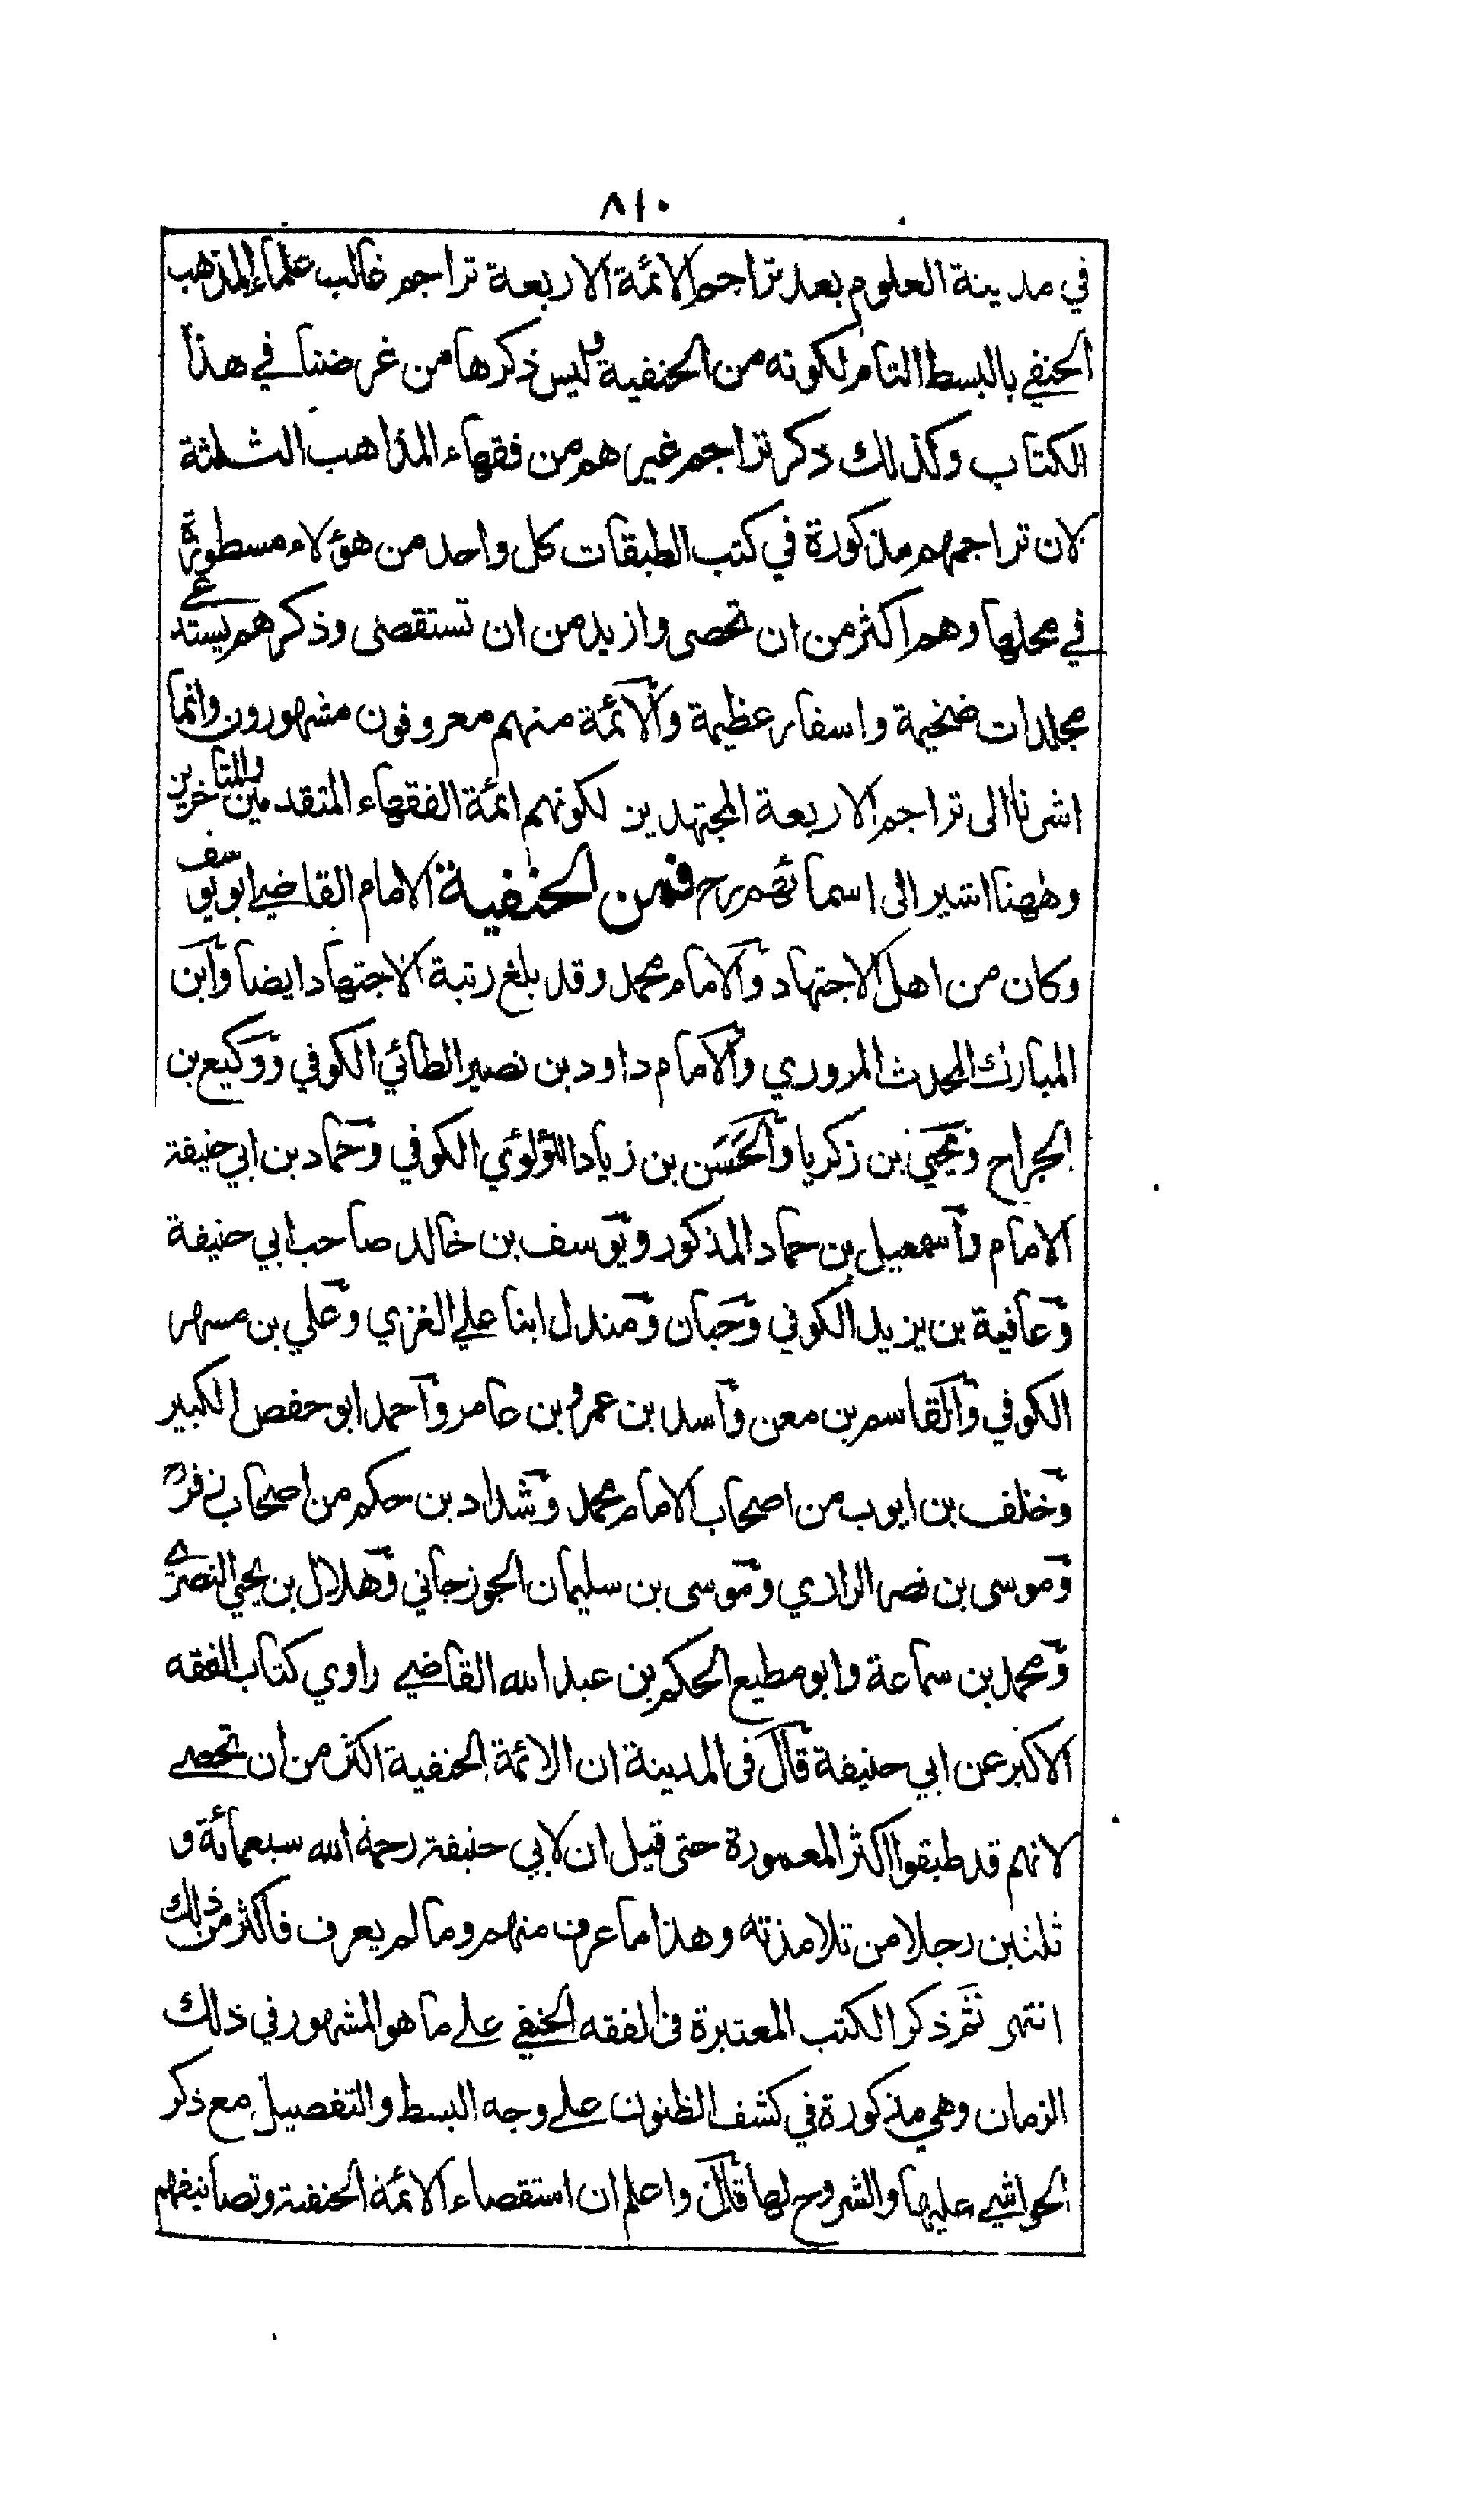 ٨١٠
في مدينة العلوم بعد تراجم الائمة الاربعة تراجم غالب علماء المذهب
الحنفي بالبسط التام لكونه من الحنفية وليس ذكرها من غرضنا في هذا
الكتاب وكذلك ذكر تراجم غيرهم من فقهاء المذاهب الثلثة
لان تراجمهم مذكورة في كتب الطبقات كل واحد من هؤلاء مسطورة
في محلها وهم اكثر من ان تحصى وازيد من ان تستقصى وذكرهم يستدعي
مجلدات ضخيمة واسفار عظيمة والآئمة منهم معروفون مشهورون وانما
اشرنا الى تراجم الاربعة المجتهدين لكونهم ائمة الفقهاء المتقدمين والمتاخرين
وههنا اشير الى اسمائهم رح فمن الحنفية الامام القاضي ابو يوسف
وكان من اهل الاجتهاد والامام محمد وقد بلغ رتبة الاجتهاد ايضا وابن
المبارك المحدث المروري والامام داود بن نصير الطائي الكوفي ووكيع بن
الجراح ويحيى بن زكريا والحَسَن بن زياد اللؤلوي الكوفي وحماد بن ابي حنيفة
الامام واسمعيل بن حماد المذكور ويوسف بن خالد صاحب ابي حنيفة
وعافية بن يزيد الكوفي وحبان ومندل ابنا علي الغزي وعلي بن مسهر
الكوفي والقاسم بن معن واسد بن عمرو بن عامر واحمد ابو حفص الكبير
وخلف بن ايوب من اصحاب الامام محمد وشداد بن حكم من اصحاب زفر
وموسى بن نصر الرازي وموسى بن سليمان الجوزجاني وهلال بن يحي النصري
ومحمد بن سماعة وابو مطيع الحكم بن عبد الله القاضي راوي كتاب الفقه
الاكبر عن ابي حنيفة قال فى المدينة ان الائمة الحنفية اكثر من ان تحصى
لانهم قد طبقوا اكثر المعمورة حتى قيل ان لابي حنيفة رحمة الله سبعمائة و
ثلثين رجلا من تلامذته وهذا ما عرف منهم وما لم يعرف فاكثر من ذلك
انتهى ثم ذكر الكتب المعتبرة فى الفقه الحنفي على ما هو المشهور في ذلك
الزمان وهي مذكورة في كشف الظنون على وجه البسط والتفصيل مع ذكر
الحواشي عليها والشروح لها قال واعلم ان استقصاء الائمة الحنفية وتصانيفهم